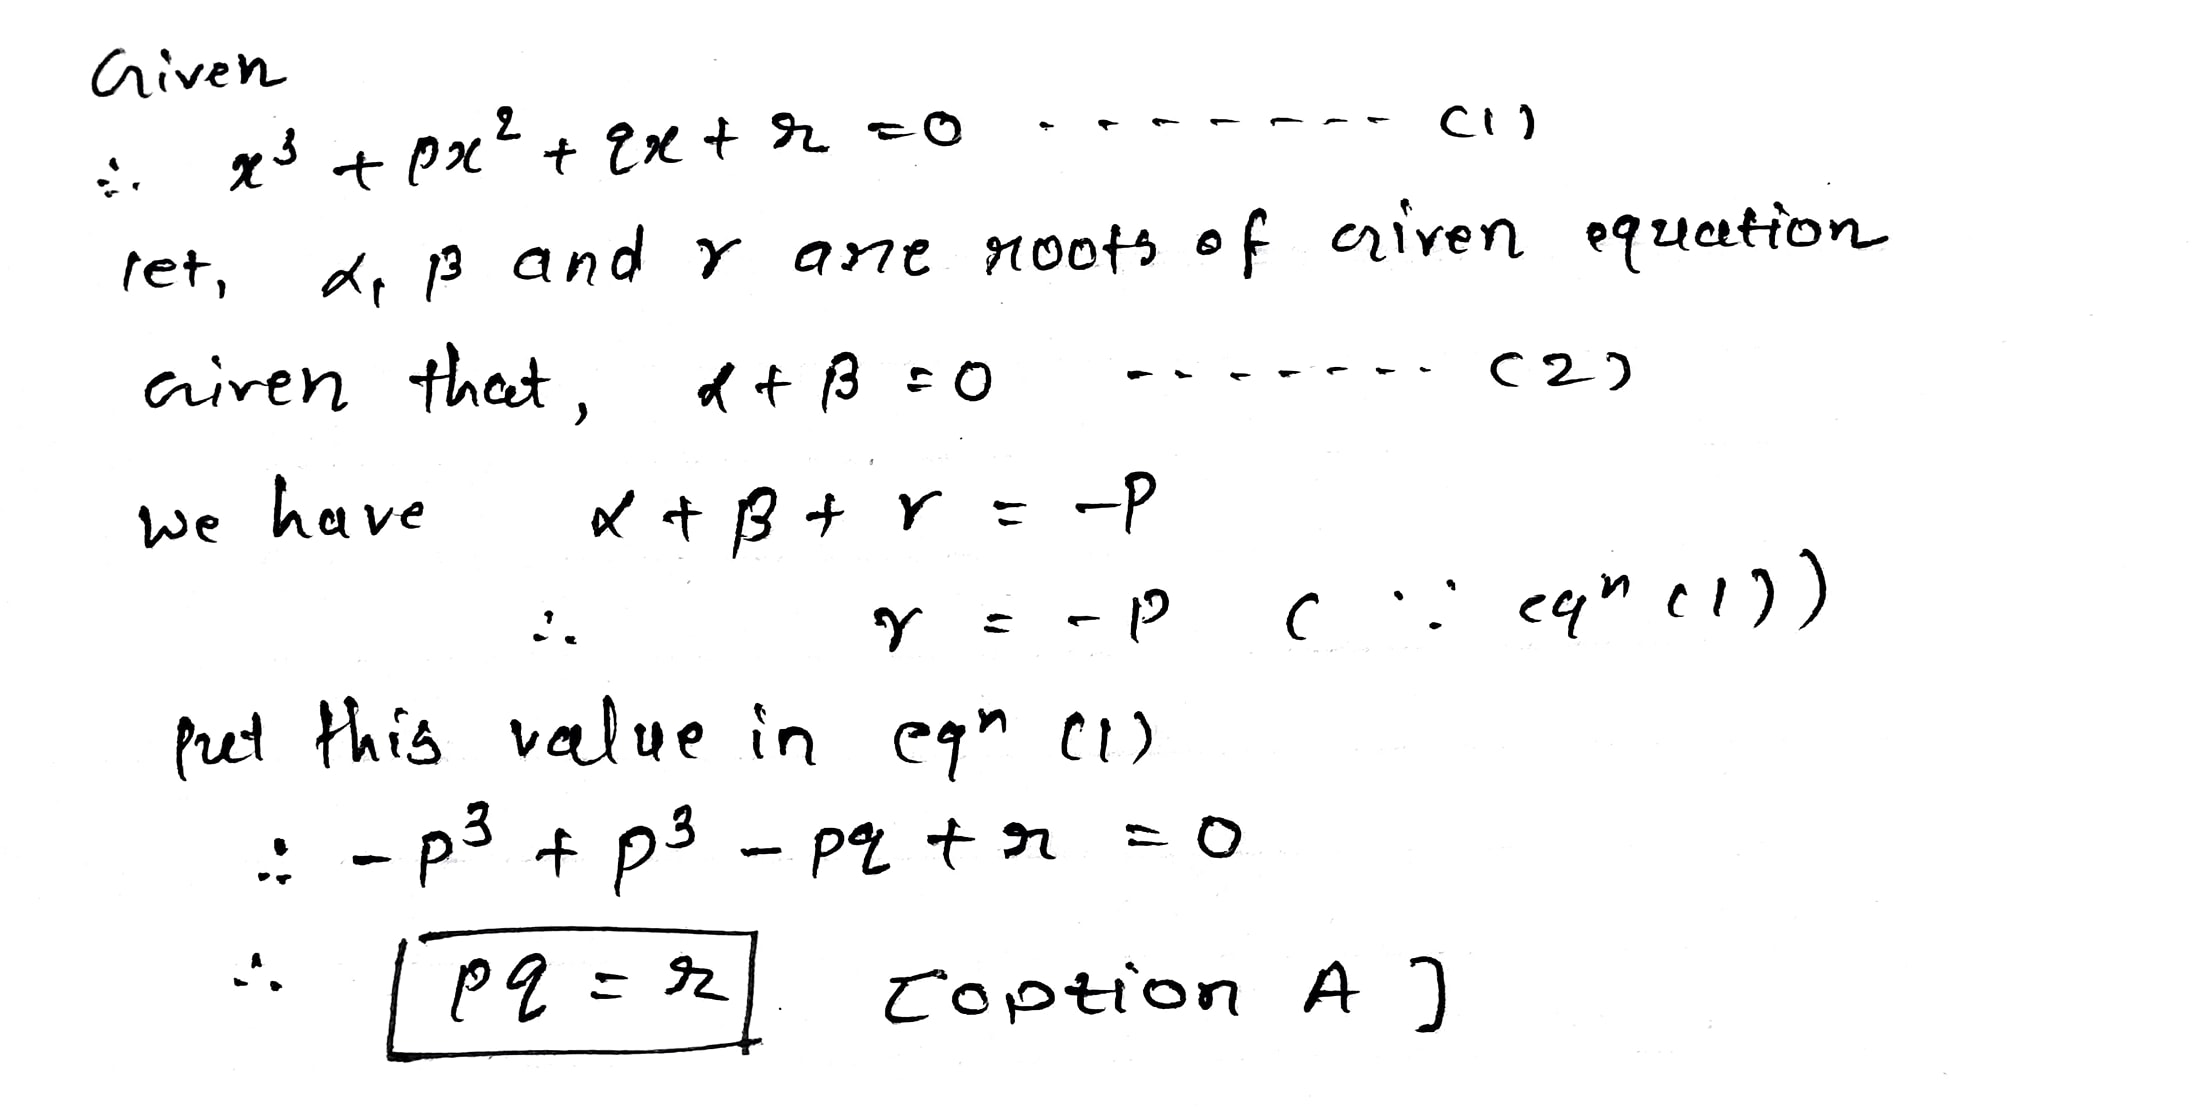 Given
∴ x³ + px² + qx + r = 0 -------- (1)
let, α, β and γ are roots of Given equation
Given that, α + β = 0 -------- (2)
we have α + β + γ = -p
∴ γ = -p ( ∵ eqⁿ (1))
put this value in eqⁿ (1)
∴ -p³ + p³ - pq + r = 0
∴ pq = r [option A]